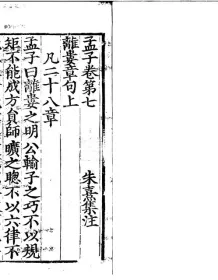 孟子卷第七
朱熹集注
離婁章句上
凡二十八章
孟子曰離婁之明公輸子之巧不以規
矩不能成方員師曠之聰不以六律不